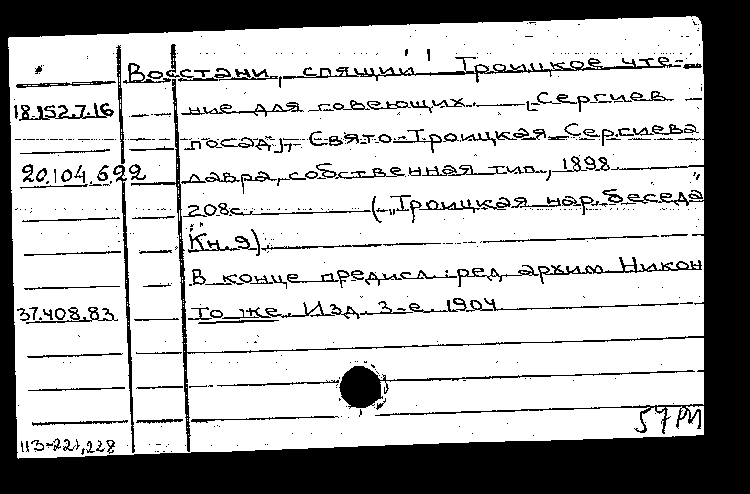 Восстани, спящий! Троицкое чте-
18.152.7.16 ние для говеющих. [Сергиев
посад], Свято-Троицкая Сергиева
20.104.6.22 лавра, собственная тип., 1898.
208с. („Троицкая нар. беседа"
Кн. 9).
В конце предисл.: ред. архим. Никон
37.408.83 То же. Изд. 3-е. 1904
57РП
113-221,228